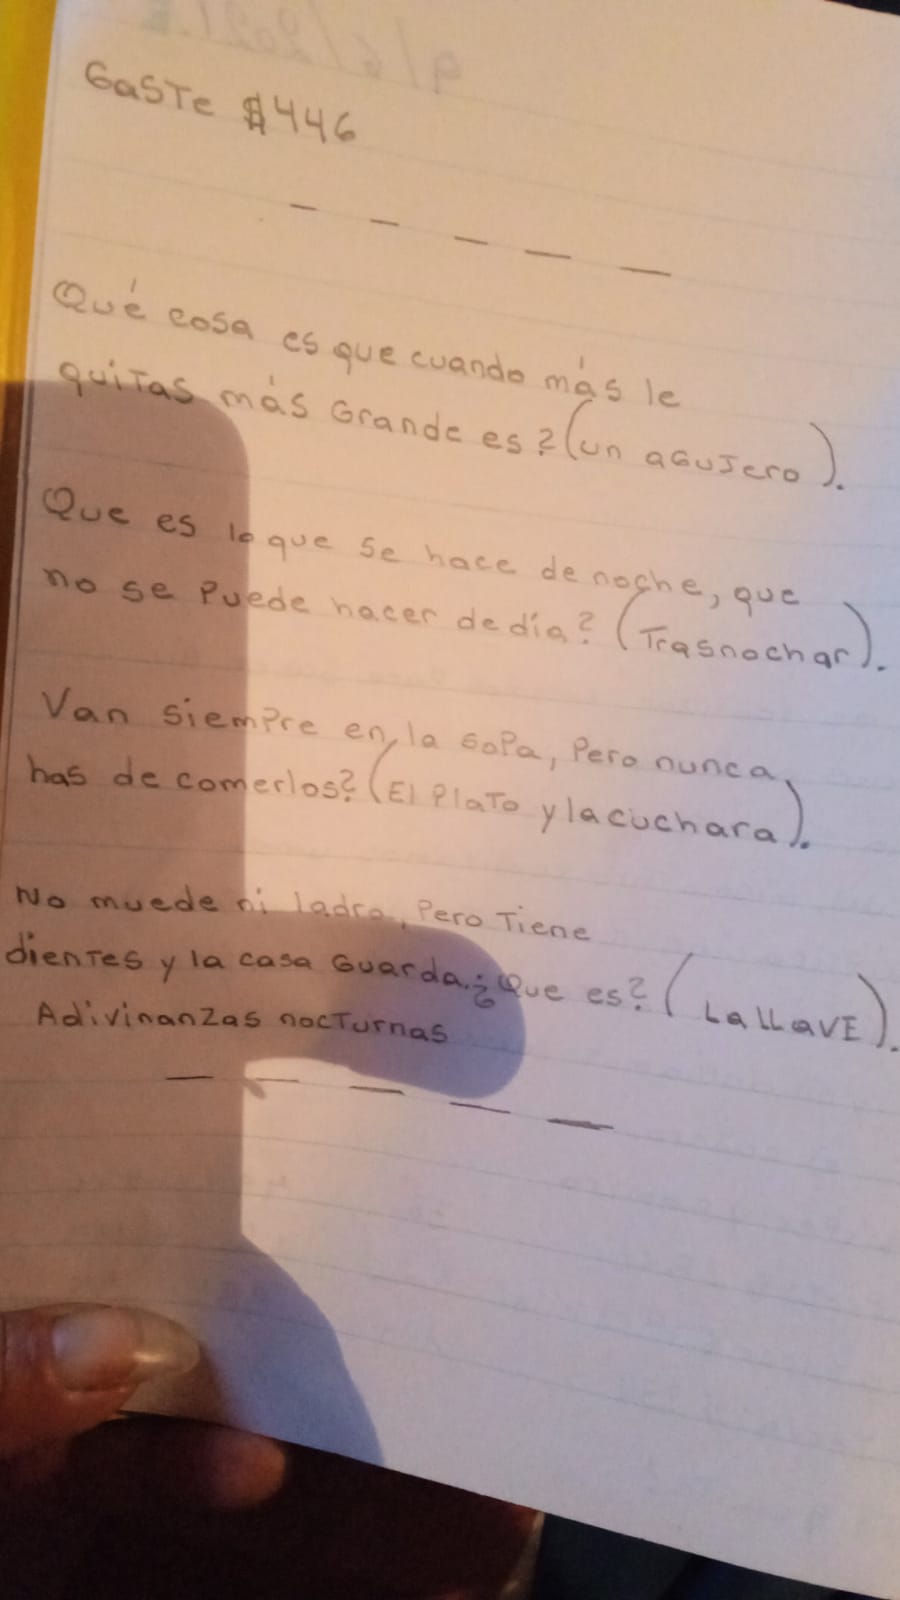 GaSTe $446
— — — — —
Qué cosa es que cuando más le
quiTas más Grande es? (un aGuJero).
Que es lo que se hace de noche, que
no se Puede hacer de día? (Trasnochar).
Van siemPre en la soPa, Pero nunca
has de comerlos? (El PlaTo y la cuchara).
No muede ni ladra, Pero Tiene
dienTes y la casa Guarda. ¿Que es? (La LLAVE).
AdivinanZas nocTurnas
— — — — —